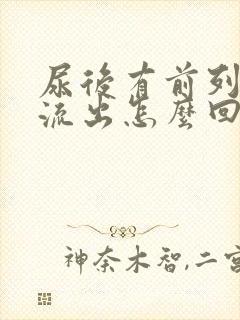 尿後有前列
流出怎麼回
神奈木智,二宮